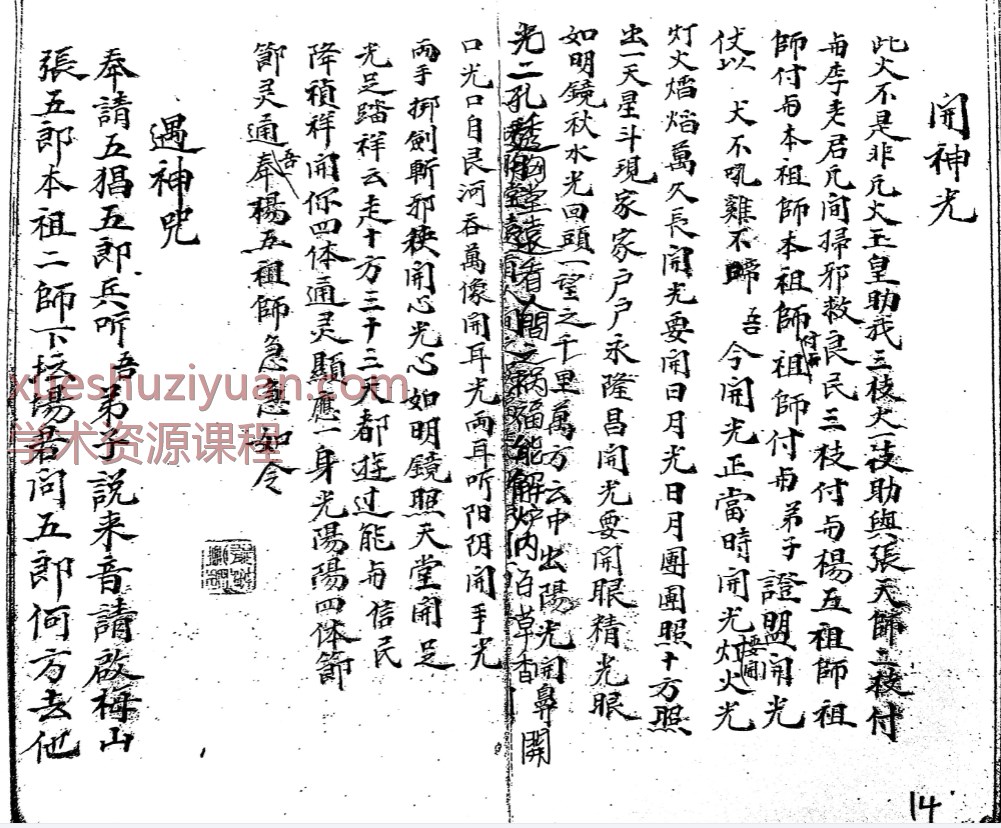 開神光
此火不是非凡火玉皇助我三枝火一枝助與張天師二枝付
与李老君凡間掃邪救良民三枝付与楊五祖師祖
師付与本祖師本祖師付与祖師付与弟子證盟開光
仗以 犬不吼雞不啼 吾今開光正當時開光燈火光
灯火熖熖萬久長開光要開日月光日月團團照十方照
出一天星斗現家家户户永隆昌開光要開眼精光眼
如明鏡秋水光回頭一望之千里萬方云中出陽光開鼻
光二孔透 遠看人間之禍福能解炉内百草香 開
口光口自良河吞萬像開耳光两耳听阳阴開手光
两手挪劍斬邪 開心光心如明鏡照天堂開足
光足踏祥云走十方三十三天都遊过能与信民
降禎祥開你四体通灵顯應一身光陽陽四体節
節灵通吾奉楊五祖師急急如令
遇神咒
奉請五猖五郎兵听吾弟子説来音請啟梅山
張五郎本祖二師下 場君问五郎何方去他
xueshuziyuan.com
学术资源课程
14